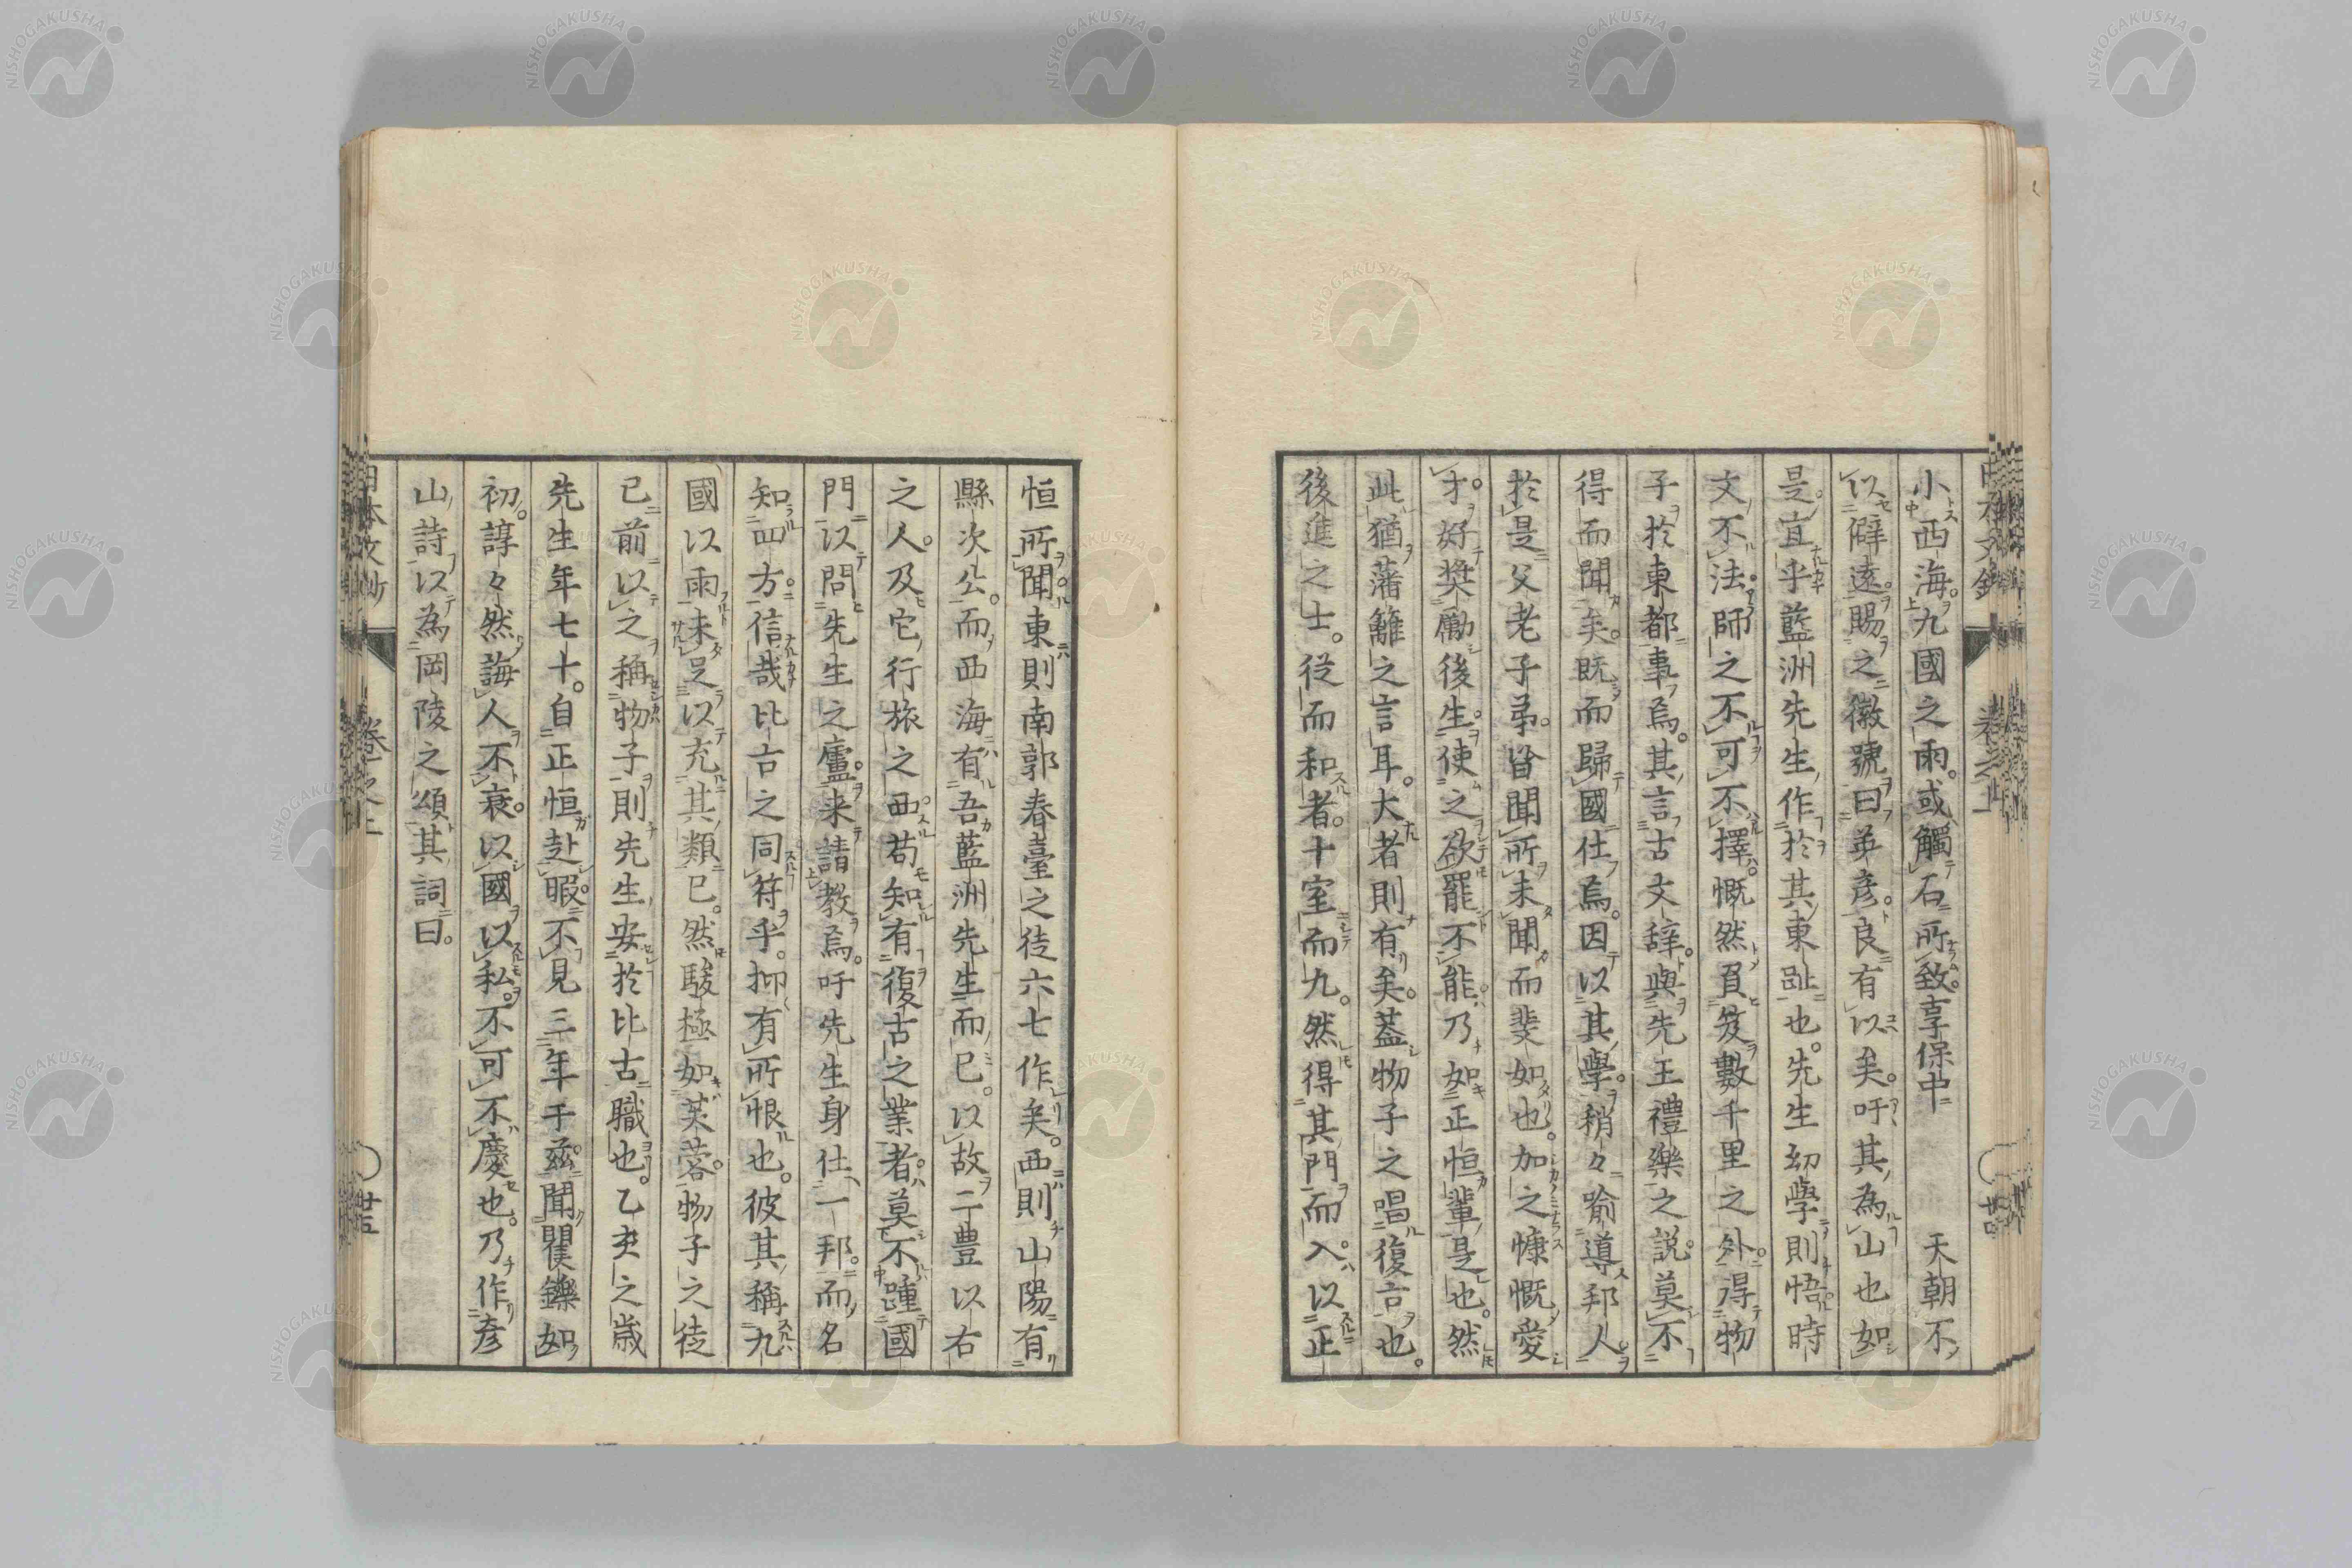 小西海九國之雨。或觸石所致。享保中　天朝不
以僻遠賜之徽號曰英彦。良有以矣。吁其為山也如
是。宜乎藍洲先生作於其東趾也。先生幼學則悟時
文不法。師之不可不擇。慨然負笈數千里之外。得物
子於東都事焉。其言古文辭。與先王禮樂之說。莫不
得而聞矣。既而歸國仕焉。因以其學。稍々喻導邦人。
於是父老子弟。皆聞所未聞而斐如也。加之慷慨愛
才。好奬勵後生。使之欲罷不能。乃如正恒輩是也。然
此猶藩籬之言耳。大者則有矣。蓋物子之唱復古也。
後進之士。從而和者。十室而九。然得其門而入。以正
恒所聞東則南郭春臺之徒六七作矣。西則山陽有
縣次公。而西海有吾藍洲先生而已。以故二豊以右
之人。及它行旅之西。苟知有復古之業者。莫不踵國
門以問先生之廬。来請教焉。吁先生身仕一邦。而名
知四方。信哉比古之同符乎。抑有所恨也。彼其稱九
國以雨未足以充其類已。然駿極如芙蓉。物子之徒
已前以之稱物子則先生安於比古職也。乙亥之歳
先生年七十。自正恒赴暇。不見三年于茲。聞矍鑠如
初。諄々然誨人不衰。以國以私。不可不慶也。乃作彦
山詩以為岡陵之頌其詞曰。
日本文鈔　卷之上　〇　廿五